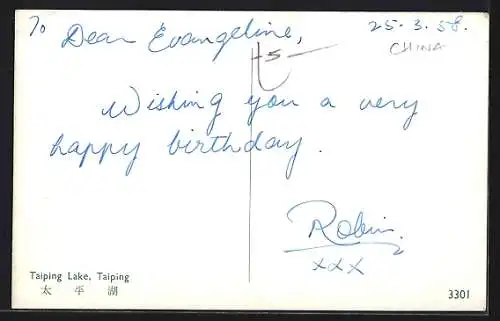 To
Dear Evangeline,
25-3.58.
CHINA
Wishing you a very
happy birthday.
Robin.
xxx
Taiping Lake, Taiping
太 平 湖
3301